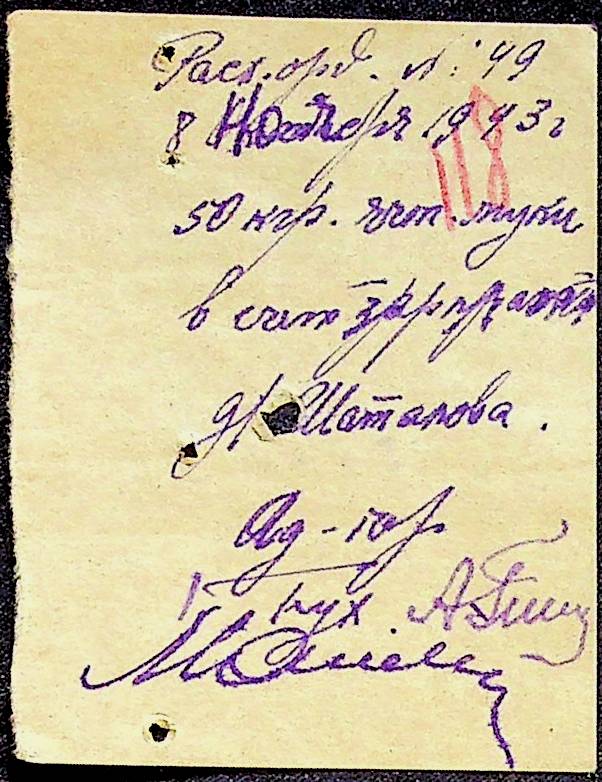 Расх. орд. №: 49
8 Ноября 1943 г
118
50 кгр. ячм. муки
в счет зарплаты
Шаталова.
Ад-тор
бух